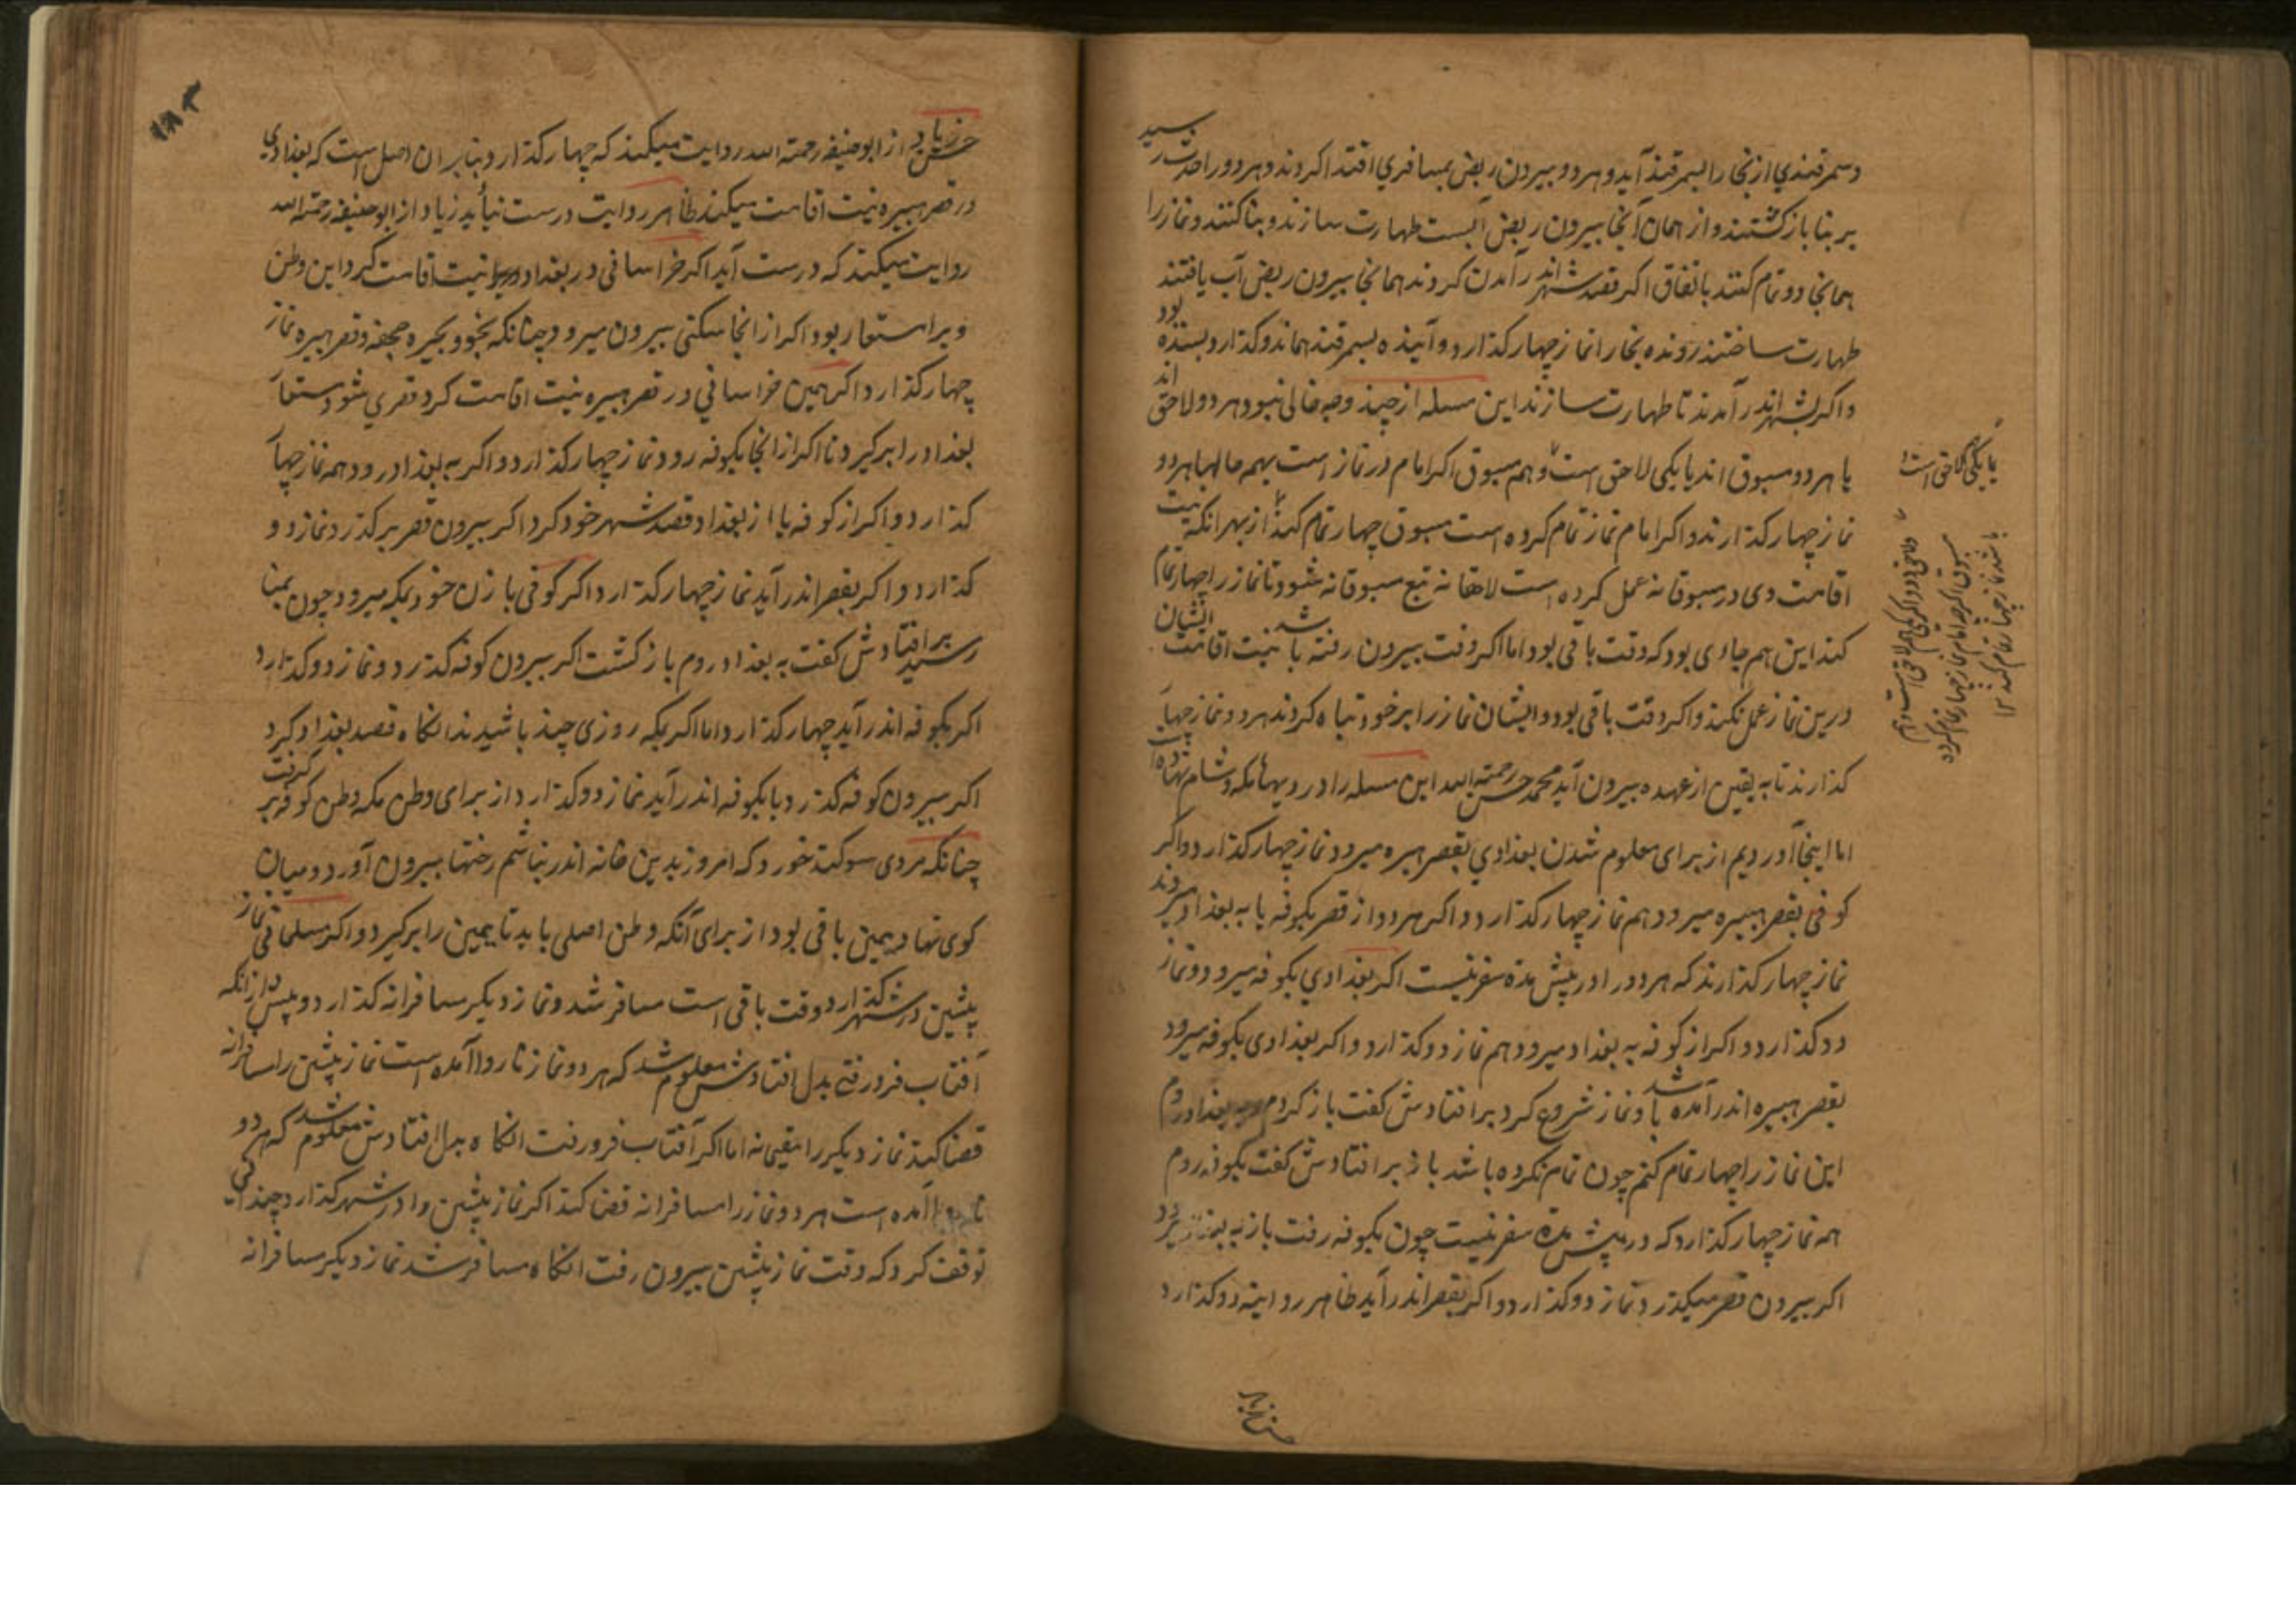 وسمرقندي از بخارا بسمرقند آید و هر دو بیرون ربض بمسافري اقتدا کردند و هر دو را حدث رسید
بر بنا بازکشتند و از همان آنجا بیرون ربض آبست طهارت سازند و بنا کنند و نماز را
همانجا دو تمام کنند باتفاق اکر قصد شهر اندر آمدن کردند همانجا بیرون ربض آب یافتند
طهارت ساختند رونده بخارا نماز چهار کذارد و آینده بسمرقند هماندو کذارد بسنده بود
و اکر بشهر اندر آمدند تا طهارت سازند این مسله از چند وجه خالی نبود هر دو لاحق اند
یا هر دو مسبوق اند یا یکی لاحق است و هم مسبوق اکر امام در نماز است بهمه حالها هر دو
نماز چهار کذارند و اکر امام نماز تمام کرده است مسبوق چهار تمام کند از بهر انکه نیت
اقامت وی در مسبوقانه عمل کرده است لاحقانه تبع مسبوقانه شود تا نماز را چهار تمام
کند این هم جاوی بود که وقت باقی بود اما اکر وقت بیرون رفته باشد نیت اقامت ایشان
درین نماز عمل نکند و اکر وقت باقی بود و ایشان نماز را بر خود تباه کردند هر دو نماز چهار
کذارند تا به یقین از عهده بیرون آید محمد حسن رحمته الله این مسله را در رویهاء مکه و شام
اما اینجا آوردیم از برای معلوم شدن بعدادي بقصر هبیره میرود نماز چهار کذارد و اکر
کوفي بقصر هبیره میرود هم نماز چهار کذارد و اکر هر دو از قصر بکوفه یا به بغداد میروند
نماز چهار کذارند که هر دو را در پیش مدة سفر نیست اکر بغدادي بکوفه میرود و نماز
دو کذارد و اکر از کوفه به بغداد میرود هم نماز دو کذارد و اکر بغدادی بکوفه میرود
بقصر هبیره اندر آمده باشد و نماز شروع کرد بر افتادش کفت باز کردم و به بغداد روم
این نماز را چهار تمام کنم چون تمام نکرده باشد باز بر افتادش کفت بکوفه روم
همه نماز چهار کذارد که در پیش مدة سفر نیست چون بکوفه رفت باز به بغداد میرود
اکر بیرون قصر میکذرد نماز دو کذارد و اکر بقصر اندر آید ظاهر روایته دو کذارد
یا یکی لاحق است
حسن زیاد
۱۸۳
حسن زیاد از ابوحنیفه رحمته الله روایت میکند که چهار کذارد و بنا بر ان اصل است که بغدادي
در قصر هبیره نیت اقامت میکند ظاهر روایت درست نیاید زیاد از ابوحنیفه رحمته الله
روایت میکند که درست آید اکر خراسانی در بغداد نیت اقامت کرد این وطن
ویرا مستعار بود اکر از انجا میکنی بیرون میرود چنانکه بخو و بحیره و جحفه و قصر هبیره نماز
چهار کذارد اکر همین خراساني در قصر هبیره نیت اقامت کرد قصري شود و مستعار
بغداد را برکیرد تا اکر از انجا بکوفه رود نماز چهار کذارد و اکر به بغداد رود همه نماز چهار
کذارد و اکر از کوفه یا از بغداد قصد شهر خود کرد اکر بیرون قصر برکذرد نماز دو
کذارد و اکر بقصر اندر آید نماز چهار کذارد اکر کوفی با زن خود بمکه میرود چون بمنا
رسید بر افتادش کفت به بغداد روم بازکشت اکر بیرون کوفه کذرد و نماز دو کذارد
اکر بکوفه اندر آید چهار کذارد اما اکر بمکه روزی چند باشیدند انکاه قصد بغداد کرد
اکر بیرون کوفه کذرد یا بکوفه اندر آید نماز دو کذارد از برای وطن مکه وطن کوفه برکرفت
چنانکه مردی سوکند خورد که امروز بدین خانه اندر نباشم رختها بیرون آورد و میان
کوی نهاد یمین باقی بود از برای آنکه وطن اصلی باید تا یمین را برکیرد و اکر مسلمانی نماز
پیشین در شهر کذارد و وقت باقی است مسافر شد و نماز دیکر مسافرانه کذارد و پیش از انکه
آفتاب فرو رفتی بدل افتادش معلوم شد که هر دو نماز ناروا آمده است نماز پیشین را مسافرانه
قضا کند نماز دیکر را مقیمانه اما اکر آفتاب فرو رفت انکاه بدل افتادش معلوم شد که هر دو
ناروا آمده است هر دو نماز را مسافرانه قضا کند اکر نماز پیشین را در شهر کذارد چندانی
توقف کرد که وقت نماز پیشین بیرون رفت انکاه مسافر شد نماز دیکر مسافرانه